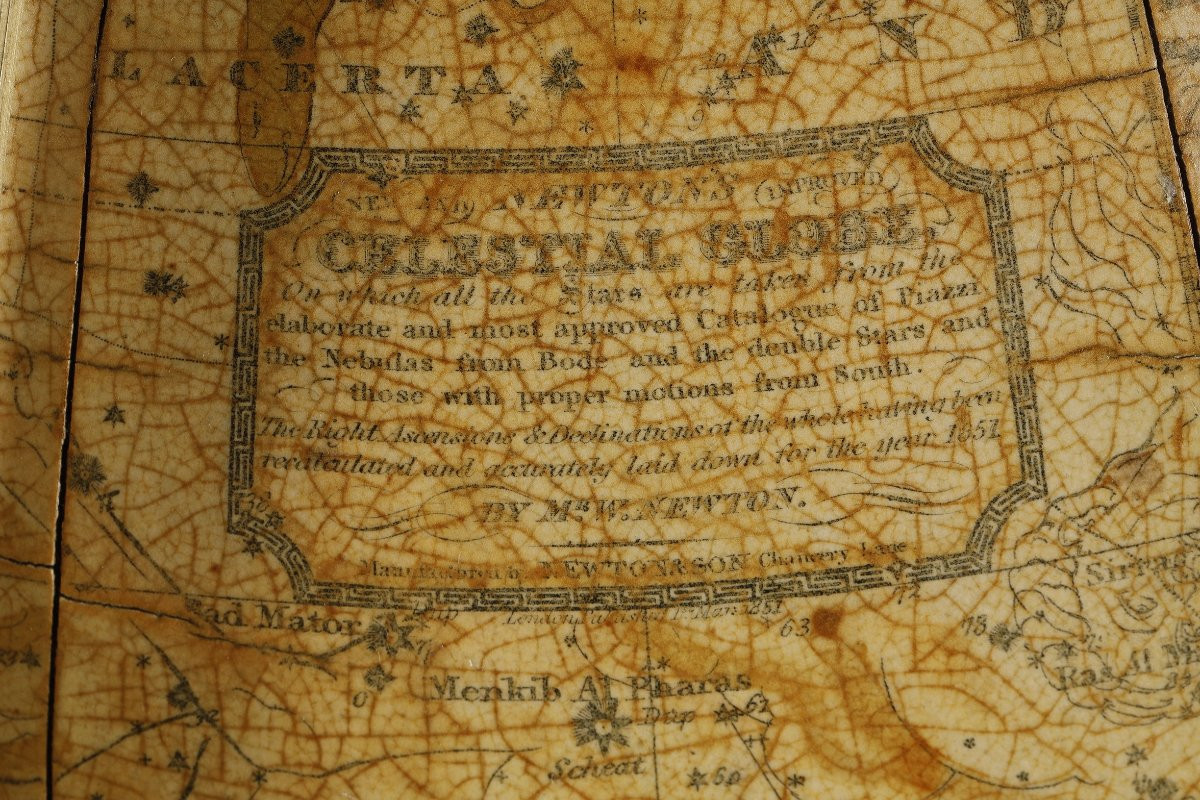 LACERTA
A N D
18
9
NEW and NEWTON'S IMPROVED
CELESTIAL GLOBE,
On which all the Stars are taken from the
elaborate and most approved Catalogue of Piazzi
the Nebulas from Bode and the double Stars and
those with proper motions from South.
The Right Ascensions & Declinations of the whole having been
recalculated and accurately laid down for the year 1851
BY Mr. W. NEWTON.
Manufactured by NEWTON & SON Chancery Lane
London
72
63
78
ad Mator
Menkib Al Pharas
Dup
Scheat